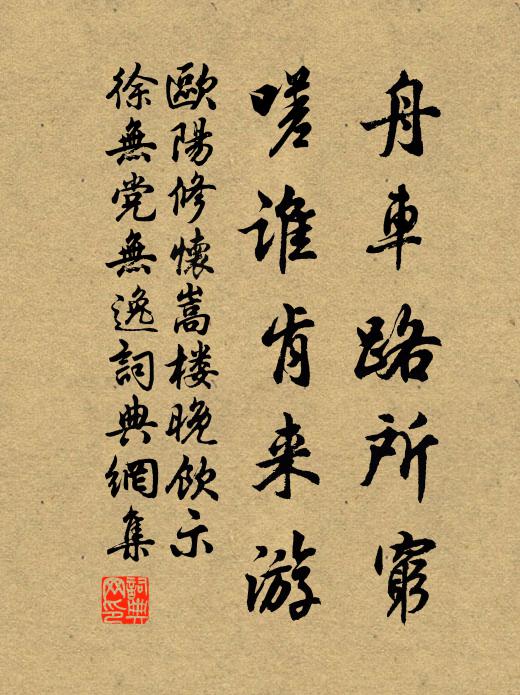 舟車路所窮
嗟誰肯来游
歐陽修懷嵩楼晚飲示
徐無党無逸詞典網集